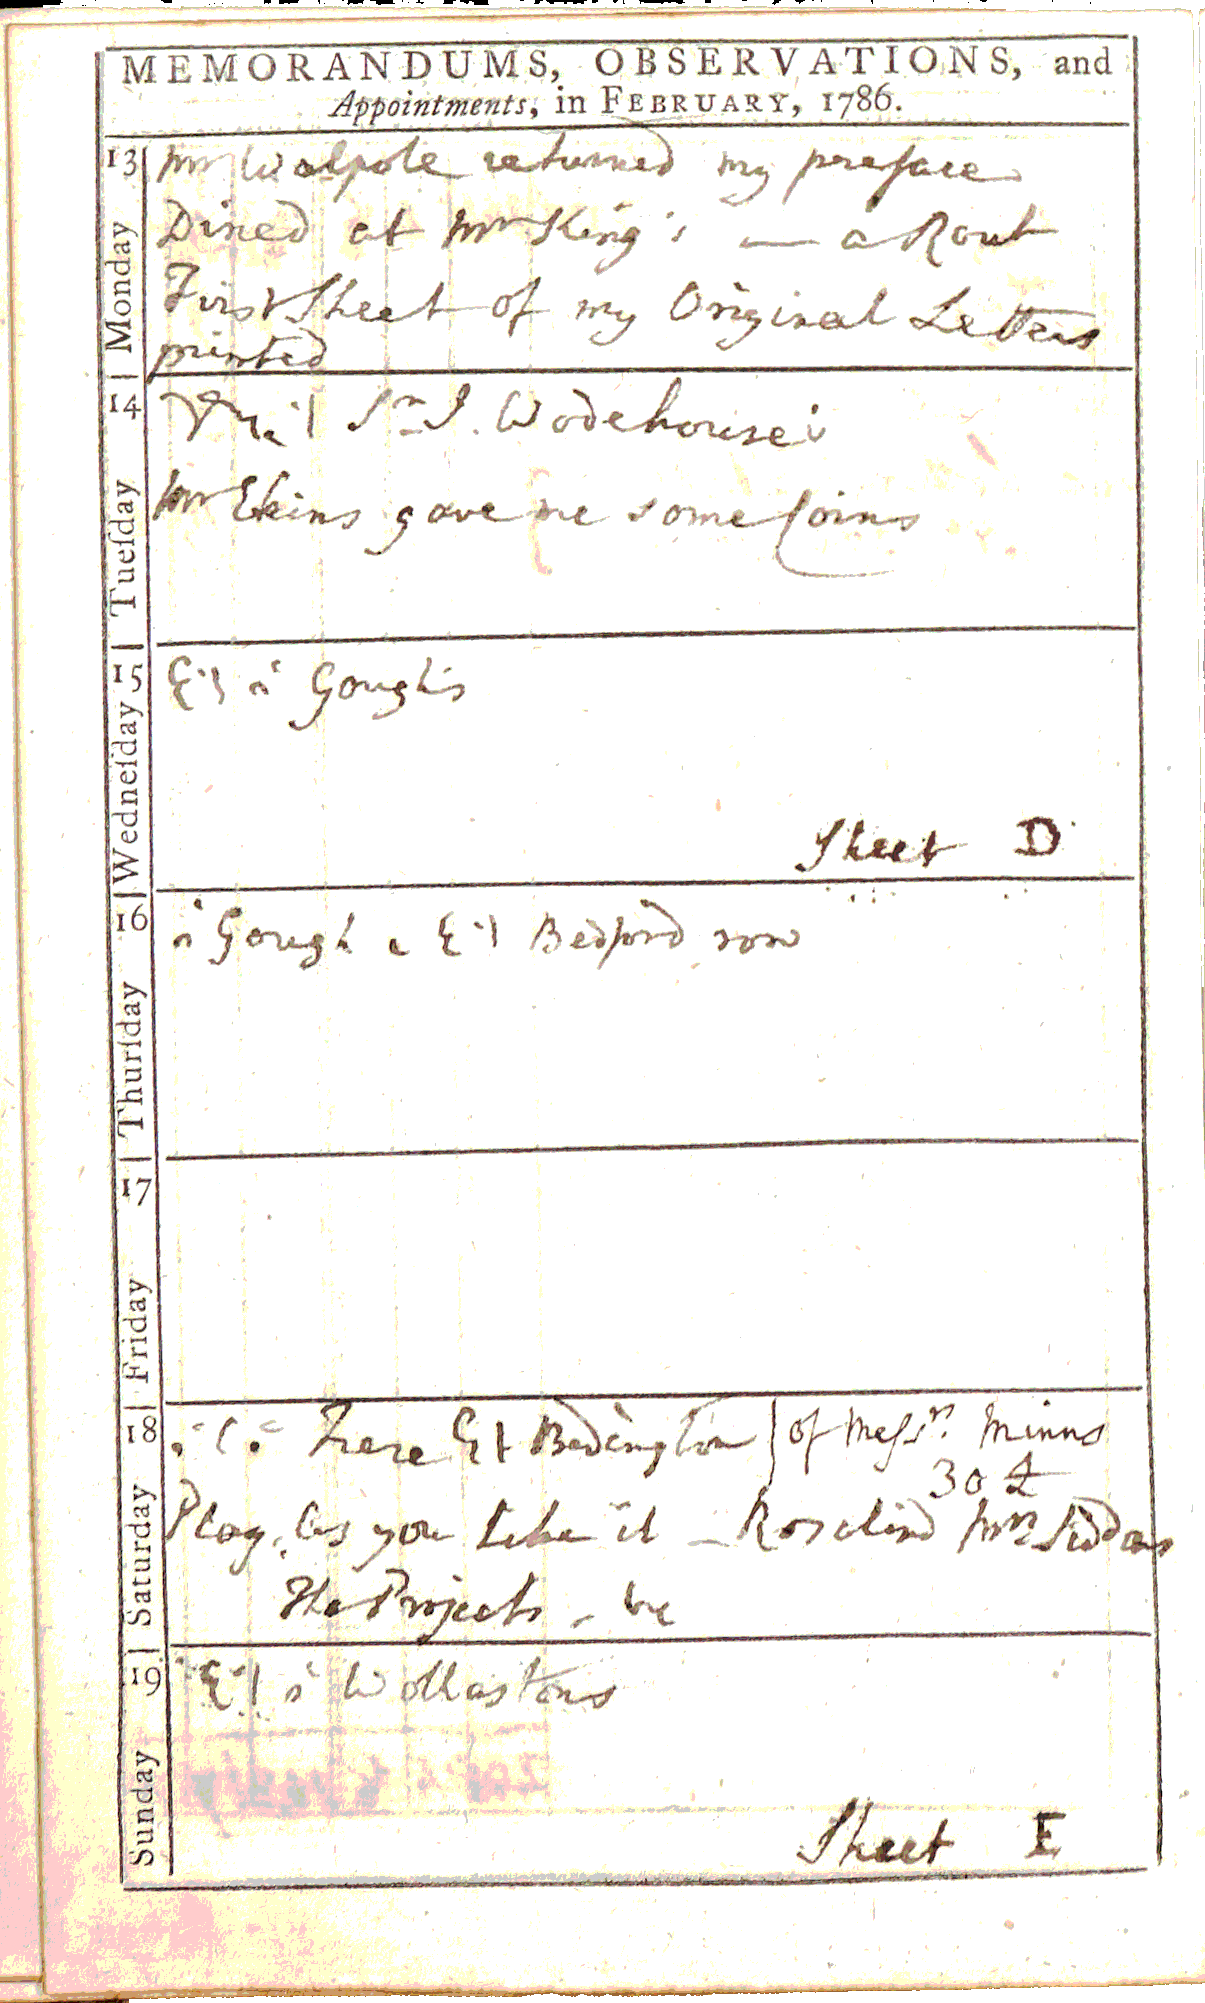 MEMORANDUMS, OBSERVATIONS, and
Appointments, in FEBRUARY, 1786.
13 Monday
Mr Walpole returned my preface
Dined at Mr King's — a Rout
First Sheet of my Original Letters
printed
14 Tueſday
Sr J. Wodehouse's
Mr Ekins gave me some Coins
15 Wedneſday
Gough's
Sheet D
16 Thurſday
Gough Bedford row
17 Friday
18 Saturday
Frere Bedington of Messrs. Minns
30 £
Play. As you like it — Rosalind Mrs Siddons
The Projects —
19 Sunday
Wollastons
Sheet E